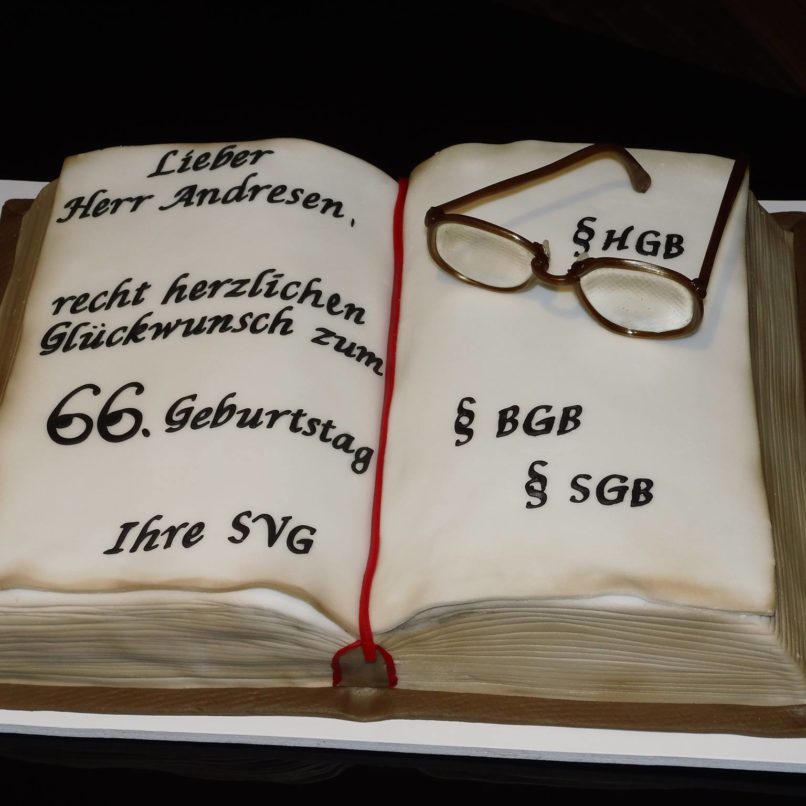 Lieber
Herr Andresen,
recht herzlichen
Glückwunsch zum
66. Geburtstag
Ihre SVG
§ HGB
§ BGB
§ SGB